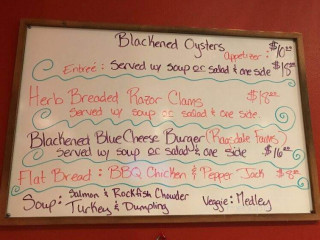 Blackened Oysters
Appetizer: $10.00
Entreé: Served w/ soup or salad & one side $18
Herb Breaded Razor Clams $18.00
Served w/ soup or salad & one side.
Blackened Blue Cheese Burger (Ragsdale Farms)
Served w/ soup or salad & one side $16.00
Flat Bread: BBQ Chicken & Pepper Jack $8.00
Soup: Salmon & Rockfish Chowder
Turkey & Dumpling
Veggie: Medley